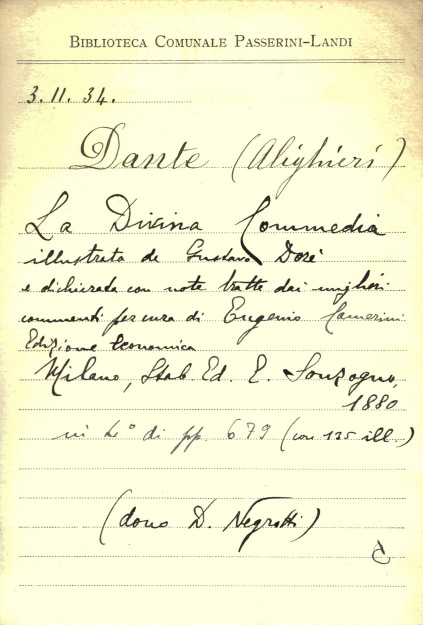 BIBLIOTECA COMUNALE PASSERINI-LANDI
3.11.34.
Dante (Alighieri)
La Divina Commedia
illustrata da Gustavo Doré
e dichiarata con note tratte dai migliori
commenti per cura di Eugenio Camerini
Edizione economica
Milano, Stab. Ed. E. Sonzogno,
1880
in 4° di pp. 679 (con 135 ill.)
(dono D. Negrotti)